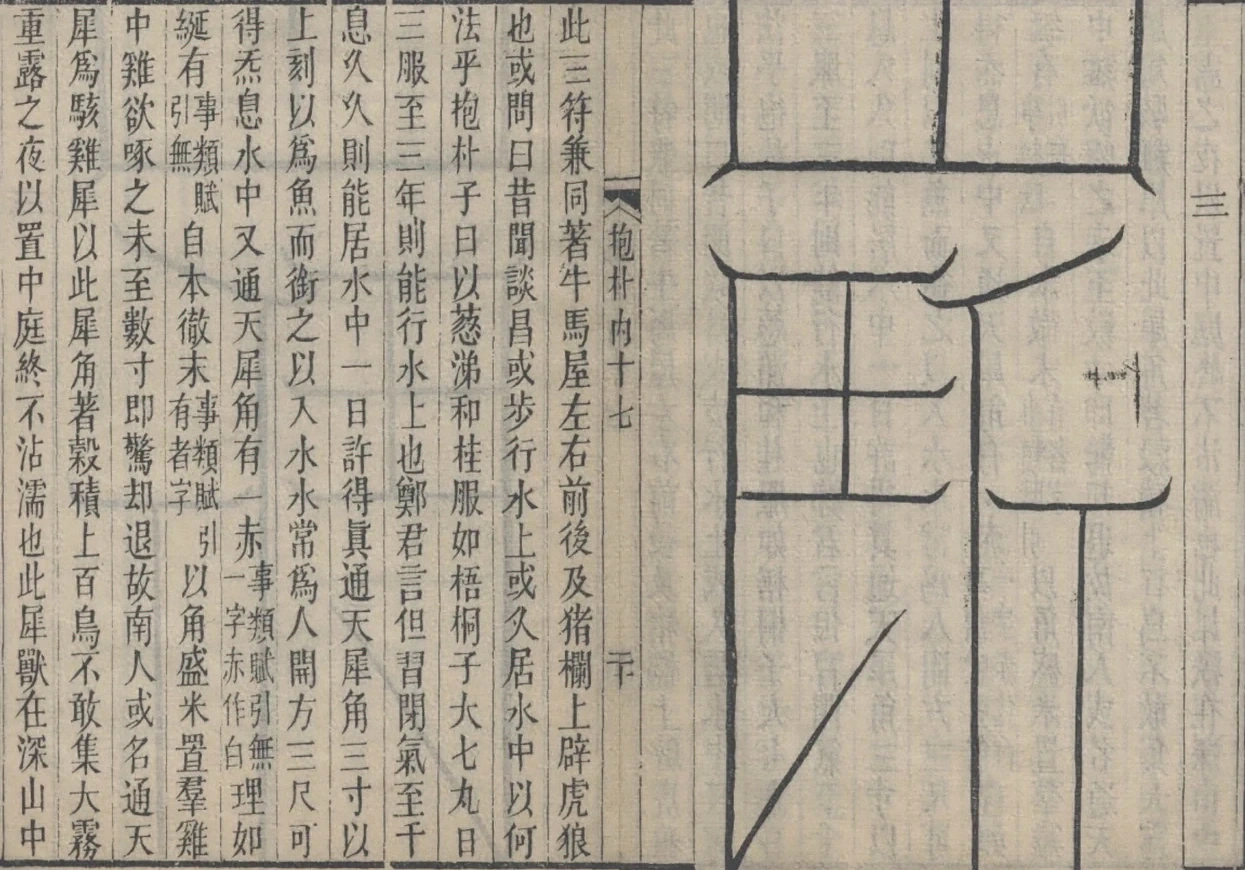 三
抱朴內十七
二十
此三符兼同著牛馬屋左右前後及猪欄上辟虎狼
也或問曰昔聞談昌或步行水上或久居水中以何
法乎抱朴子曰以葱涕和桂服如梧桐子大七丸日
三服至三年則能行水上也鄭君言但習閉氣至千
息久久則能居水中一日許得眞通天犀角三寸以
上刻以爲魚而銜之以入水水常爲人開方三尺可
得炁息水中又通天犀角有一赤事類賦引無一字赤作白理如
綖有事類賦引無自本徹末事類賦引有者字以角盛米置羣雞
中雞欲啄之未至數寸即驚却退故南人或名通天
犀爲駭雞犀以此犀角著穀積上百鳥不敢集大霧
重露之夜以置中庭終不沾濡也此犀獸在深山中